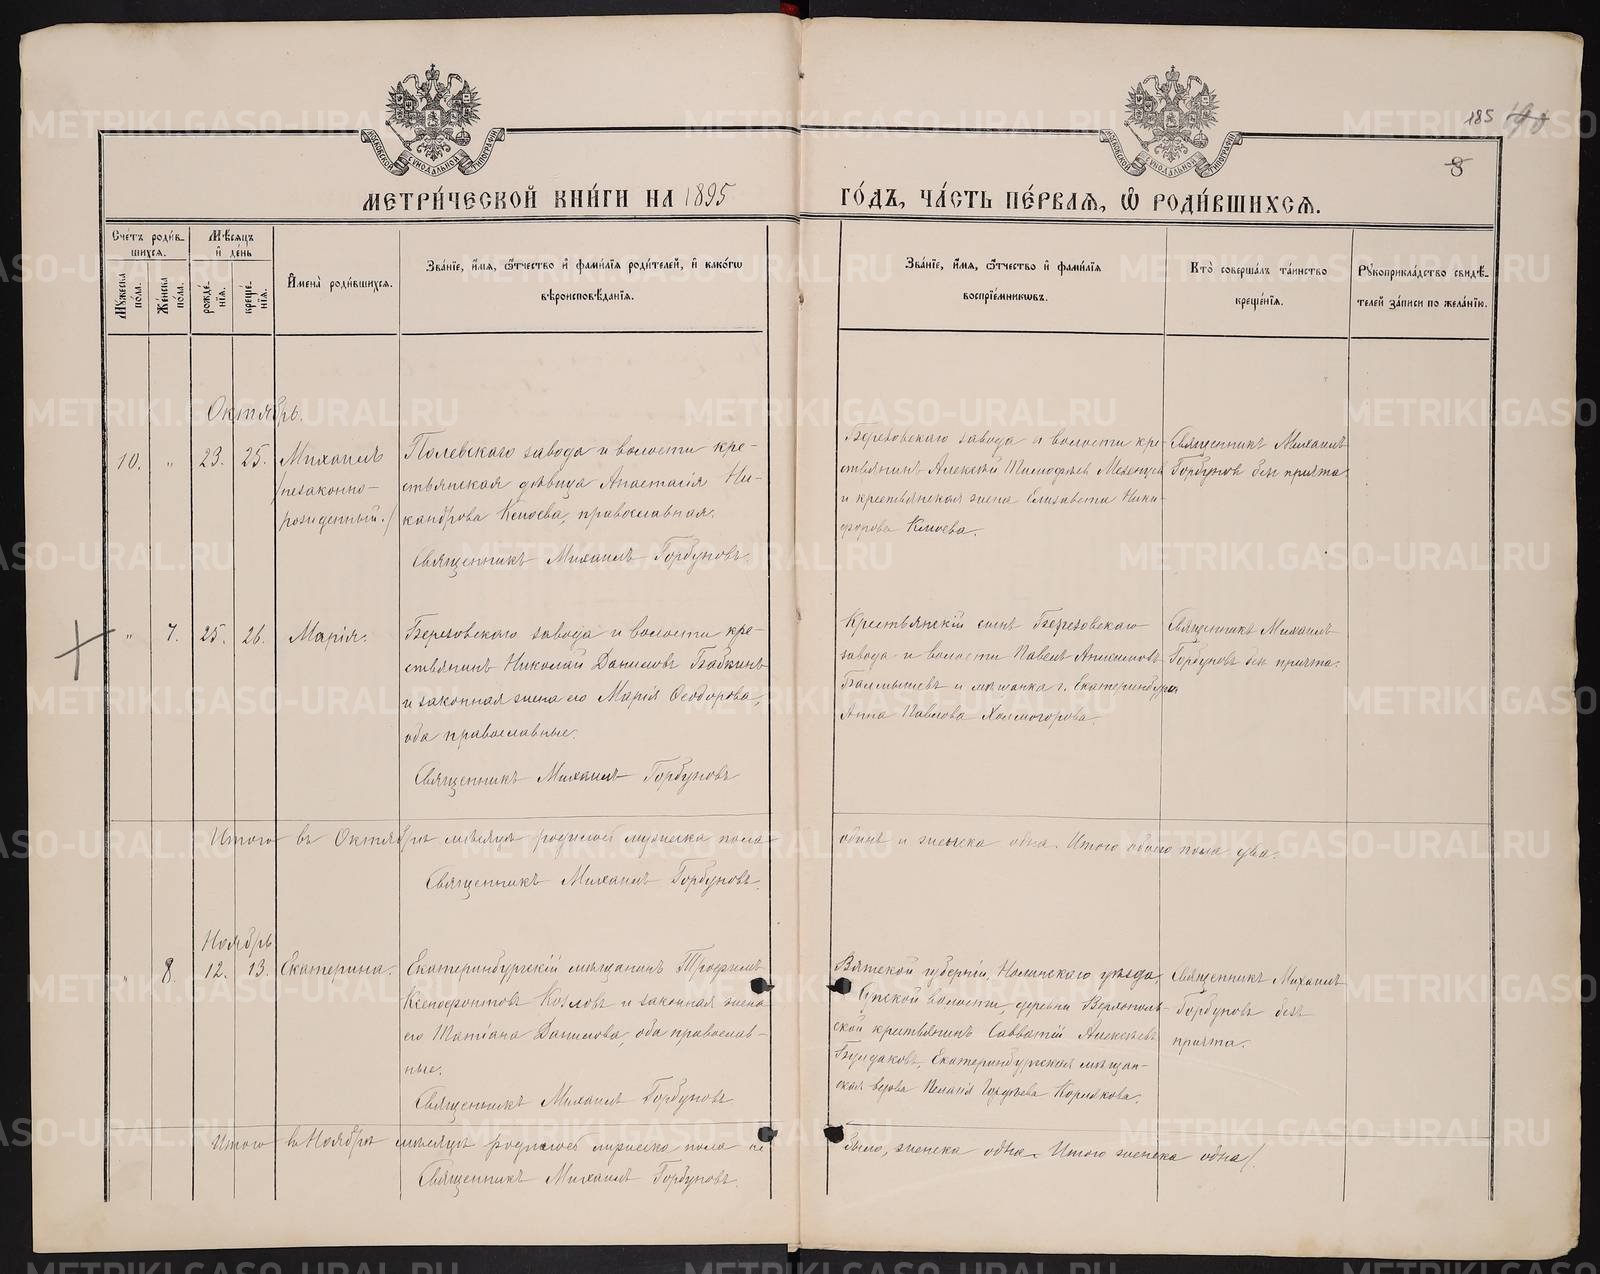 185
8
МОСКОВСКОЙ СѴНОДАЛЬНОЙ ТИПОГРАФІИ
МОСКОВСКОЙ СѴНОДАЛЬНОЙ ТИПОГРАФІИ
МЕТРИ́ЧЕСКОЙ КНИ́ГИ НА 1895 ГО́ДЪ, ЧА́СТЬ ПЕ́РВАЯ, Ѡ РОДИ́ВШИХСЯ.
Сче́тъ роди́в-
шихся.
Мꙋ́жеска
пола.
Же́нска
по́ла.
Мѣ́сяцъ
и҆ де́нь
рожде́-
нїя.
креще́-
нїя.
И҆мена̀ роди́вшихся.
Зва́нїе, и҆́мя, ѻ҆́тчество и҆ фами́лїя роди́телей, и҆ како́гѡ
вѣроисповѣ́данїя.
Зва́нїе, и҆́мя, ѻ҆́тчество и҆ фами́лїя
воспрїе́мникѡвъ.
Кто̀ соверша́лъ та́инство
креще́нїя.
Рꙋкоприкла́дство свидѣ́-
телей за́писи по жела́нїю.
Октябрь.
10. " 23. 25. Михаилъ
/незаконно-
рожденный./
Полевскаго завода и волости кре-
стьянская дѣвица Анастасія Ни-
кандрова Клюева, православная.
Священникъ Михаилъ Горбуновъ.
Березовскаго завода и волости кре-
стьянинъ Алексѣй Тимофѣевъ Мезенцев
и крестьянская жена Елизавета Ники-
форова Клюева.
Священникъ Михаилъ
Горбунов без причта.
" 7. 25. 26. Марія.
Березовскаго завода и волости кре-
стьянинъ Николай Даниловъ Бабкинъ
и законная жена его Марія Ѳеодорова,
оба православные.
Священникъ Михаилъ Горбуновъ
Крестьянскій сынъ Березовскаго
завода и волости Павелъ
и мѣщанка г. Екатеринбурга
Анна Павлова Холмогорова.
Священникъ Михаилъ
Горбуновъ без причта.
Итого въ Октябрѣ мѣсяцѣ родилось мужеска пола
одинъ и женска одна. Итого обоего пола два.
Священникъ Михаилъ Горбуновъ.
Ноябрь
" 8. 12. 13. Екатерина.
Екатеринбургскій мѣщанинъ Трофимъ
Ксенофонтовъ Козловъ и законная жена
его Татіана Данилова, оба православ-
ные.
Священникъ Михаилъ Горбуновъ
Вятской губерніи, Нолинскаго уѣзда,
волости, деревни
ской крестьянинъ Савватій Алексѣевъ
Булдаковъ, Екатеринбургская мѣщан-
ская вдова Пелагія Гордѣева Корлякова.
Священникъ Михаилъ
Горбуновъ безъ
причта.
Итого въ Ноябрѣ мѣсяцѣ родилось мужеска пола не
было, женска одна. Итого женска одна/.
Священникъ Михаилъ Горбуновъ.
METRIKI.GASO-URAL.RU